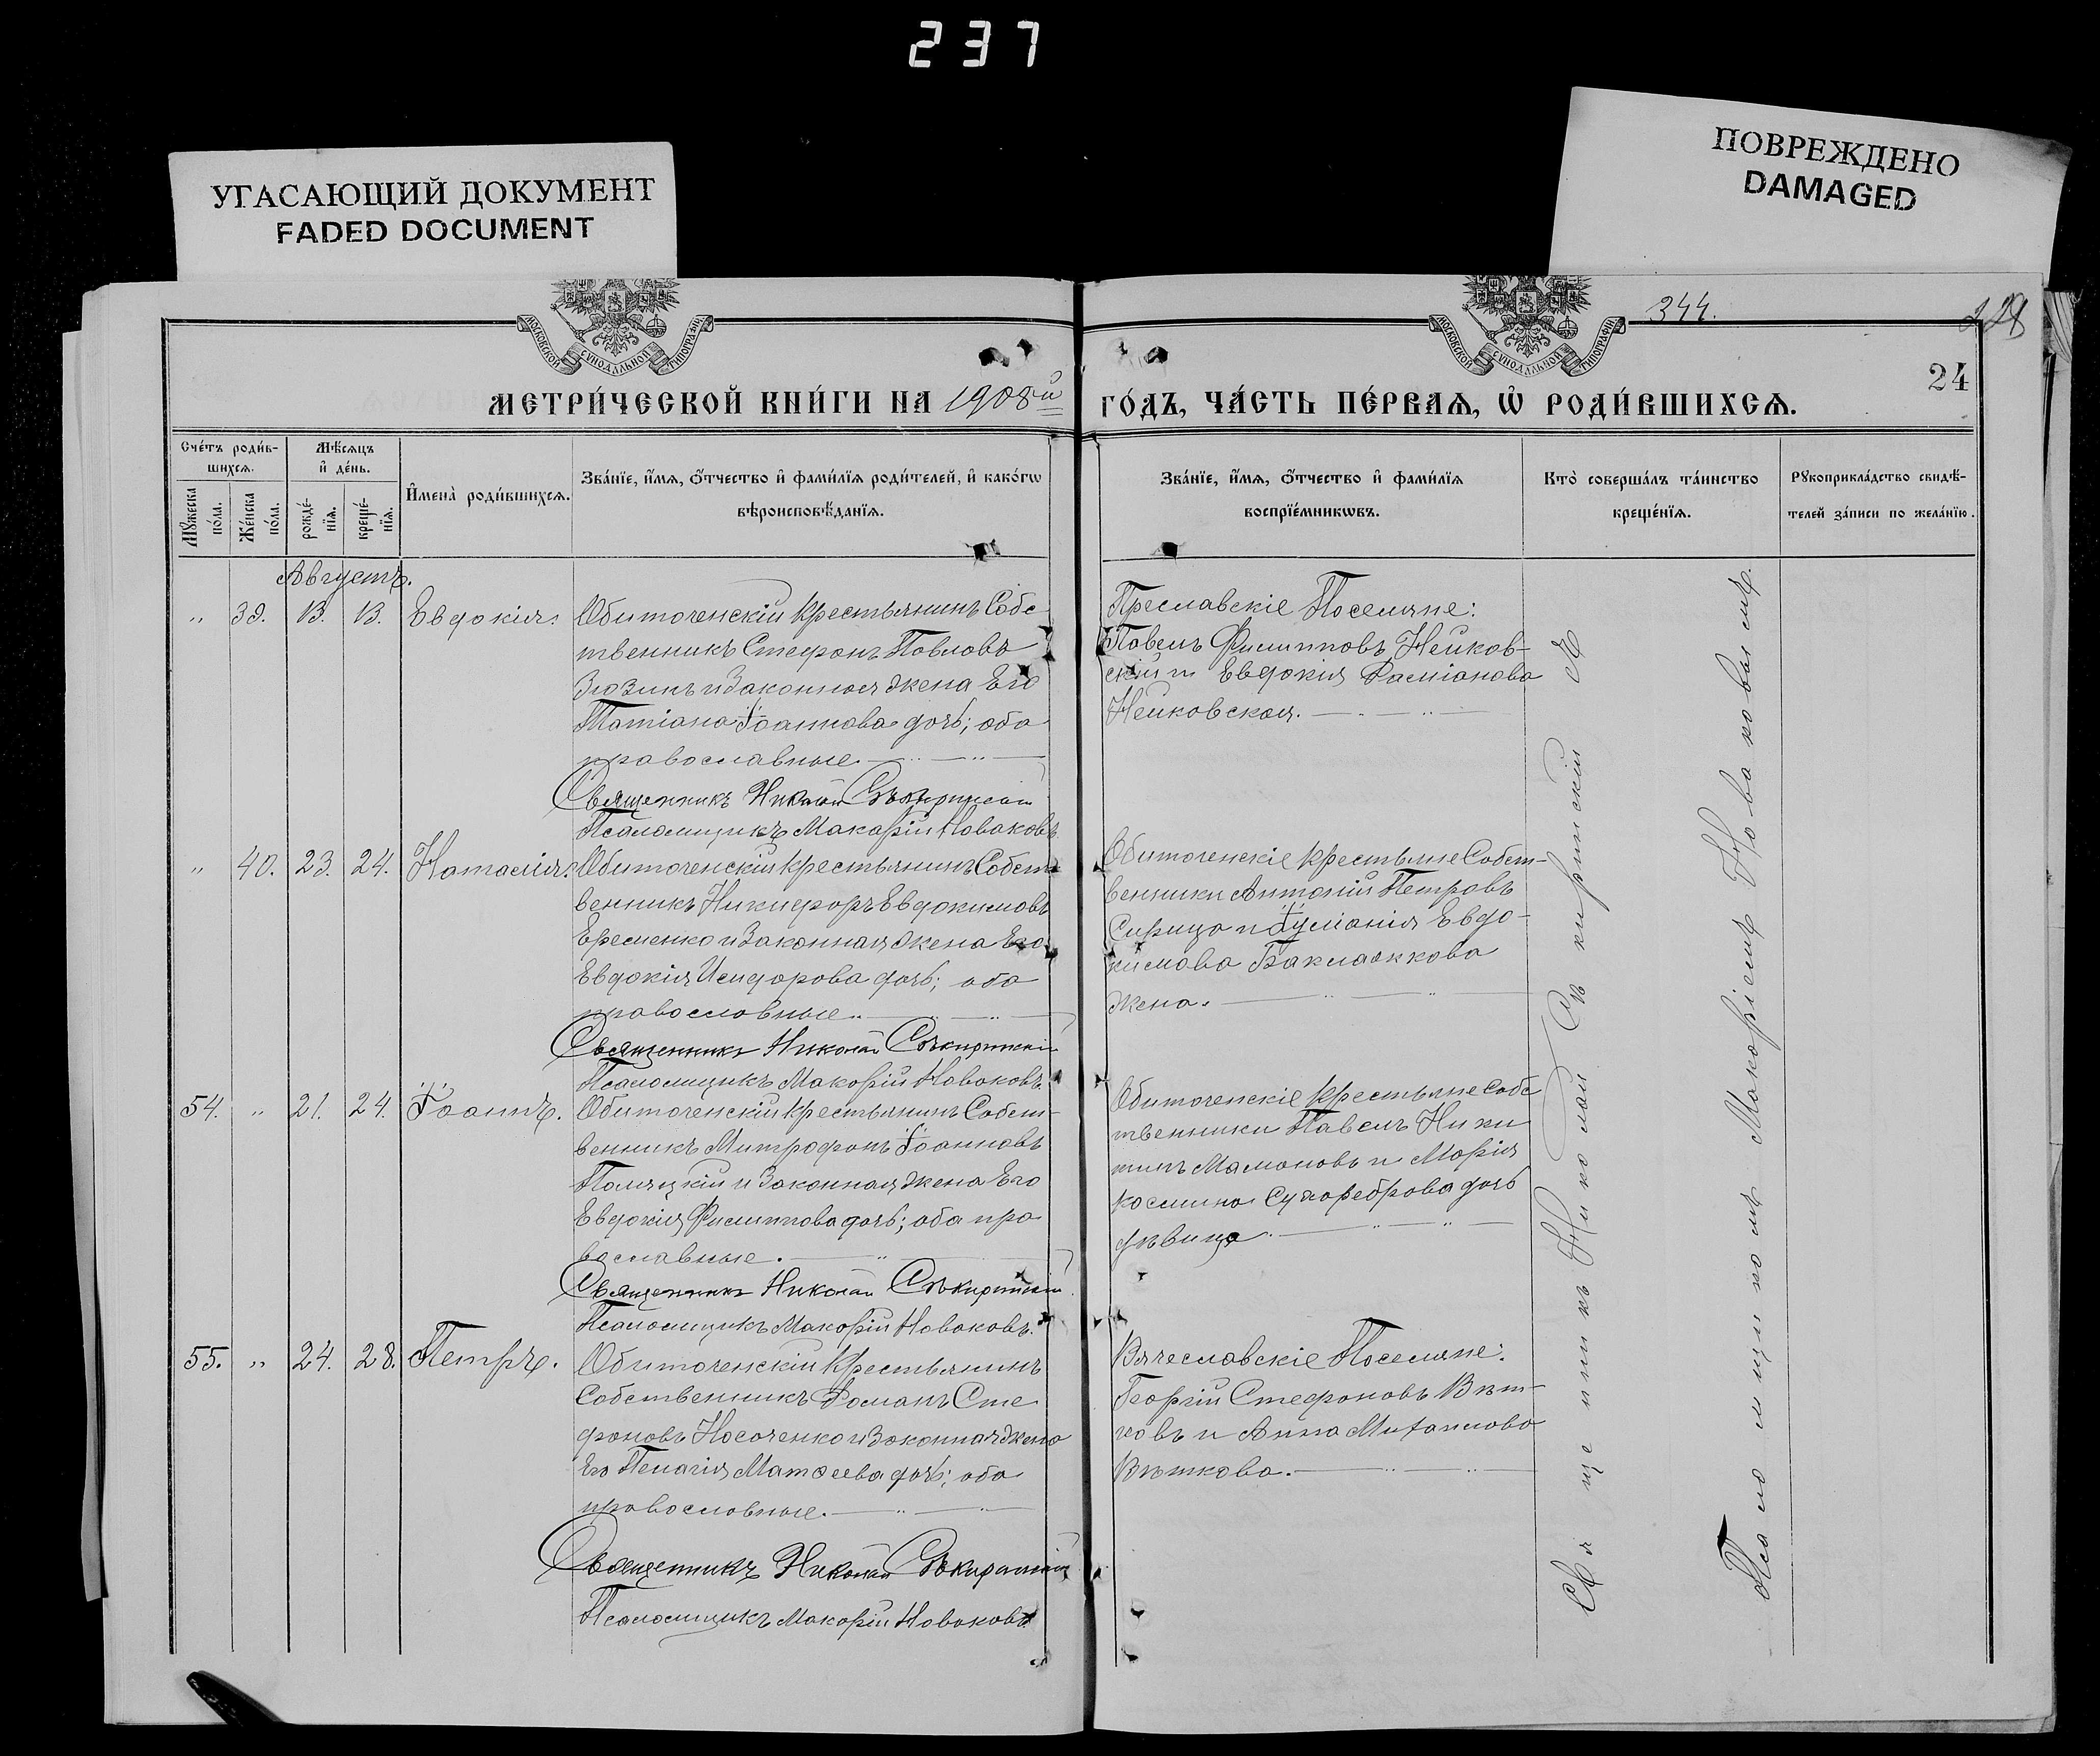 237
УГАСАЮЩИЙ ДОКУМЕНТ
FADED DOCUMENT
ПОВРЕЖДЕНО
DAMAGED
МОСКОВСКОЙ СѴНОДАЛЬНОЙ ТИПОГРАФІИ
МОСКОВСКОЙ СѴНОДАЛЬНОЙ ТИПОГРАФІИ
344.
24
МЕТРИ́ЧЕСКОЙ КНИ́ГИ НА 1908й
ГО́ДЪ, ЧА́СТЬ ПЕ́РВАѦ, Ѡ РОДИ́ВШИХСѦ.
Сче́тъ роди́в-
шихсѧ.
Мѣ́сѧцъ
и҆ де́нь.
Мꙋ́жеска
по́ла.
Же́нска
по́ла.
рожде́-
нїѧ.
креще́-
нїѧ.
И҆мена̀ роди́вшихсѧ.
Зва́нїе, и҆́мѧ, ѻ҆́тчество и҆ фами́лїѧ роди́телей, и҆ како́гѡ
вѣроисповѣ́данїѧ.
Зва́нїе, и҆́мѧ, ѻ҆́тчество и҆ фами́лїѧ
воспрїе́мникѡвъ.
Кто̀ соверша́лъ та́инство
креще́нїѧ.
Рꙋкоприкла́дство свидѣ́-
телей за́писи по жела́нїю.
Августъ.
" 39. 13. 13. Евдокія.
Обиточенскій крестьянинъ Собс
твенникъ Стефанъ Павловъ
Зюзинъ и Законная жена Его
Татіана Іоаннова дочь; оба
православные.
Священникъ Николай Сѣкиринскій
Псаломщикъ Макарій Новаковъ.
Преславскіе Поселяне:
Павелъ Филипповъ Нейков-
скій и Евдокія Даміанова
Нейковская.
" 40. 23. 24. Наталія.
Обиточенскій крестьянинъ Собст
венникъ Никифоръ Евдокимовъ
Ефеменко и Законная жена Его
Евдокія Исидорова дочь; оба
православные.
Священникъ Николай Сѣкиринскій
Псаломщикъ Макарій Новаковъ.
Обиточенскіе крестьяне Собст-
венники Антоній Петровъ
Сирица и Іуліанія Евдо-
кимова
жена.
54. " 21. 24. Іоаннъ.
Обиточенскій крестьянинъ Собст-
венникъ Митрофанъ Іоанновъ
и Законная жена Его
Евдокія Филиппова дочь; оба пра
вославные.
Священникъ Николай Сѣкиринскій
Псаломщикъ Макарій Новаковъ.
Обиточенскіе крестьяне Собс
твенники Павелъ Ники
тинъ Мамоновъ и Марія
Космина Сухореброва дочь
дѣвица.
55. " 24. 28. Петръ.
Обиточенскій крестьянинъ
Собственникъ Романъ Сте
фановъ Носаченко и Законная жена
Его Пелагія Матѳеева дочь; оба
православные.
Священникъ Николай Сѣкиринскій
Псаломщикъ Макарій Новаковъ
Вячеславскіе Поселяне:
Георгій Стефановъ Вѣт-
ковъ и Анна Михаилова
Вѣткова.
Священникъ Николай Сѣкиринскій съ
Псаломщикомъ Макаріемъ Новаковымъ.